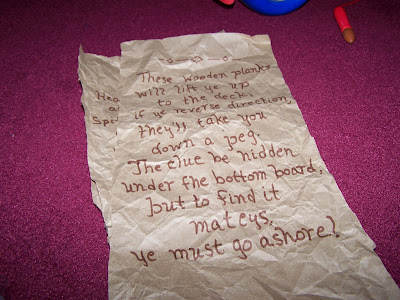 These wooden planks
will lift ye up
to the deck.
if ye reverse direction,
they'll take you
down a peg.
The clue be hidden
under the bottom board,
but to find it
mateys,
ye must go ashore!
Hea
Sp